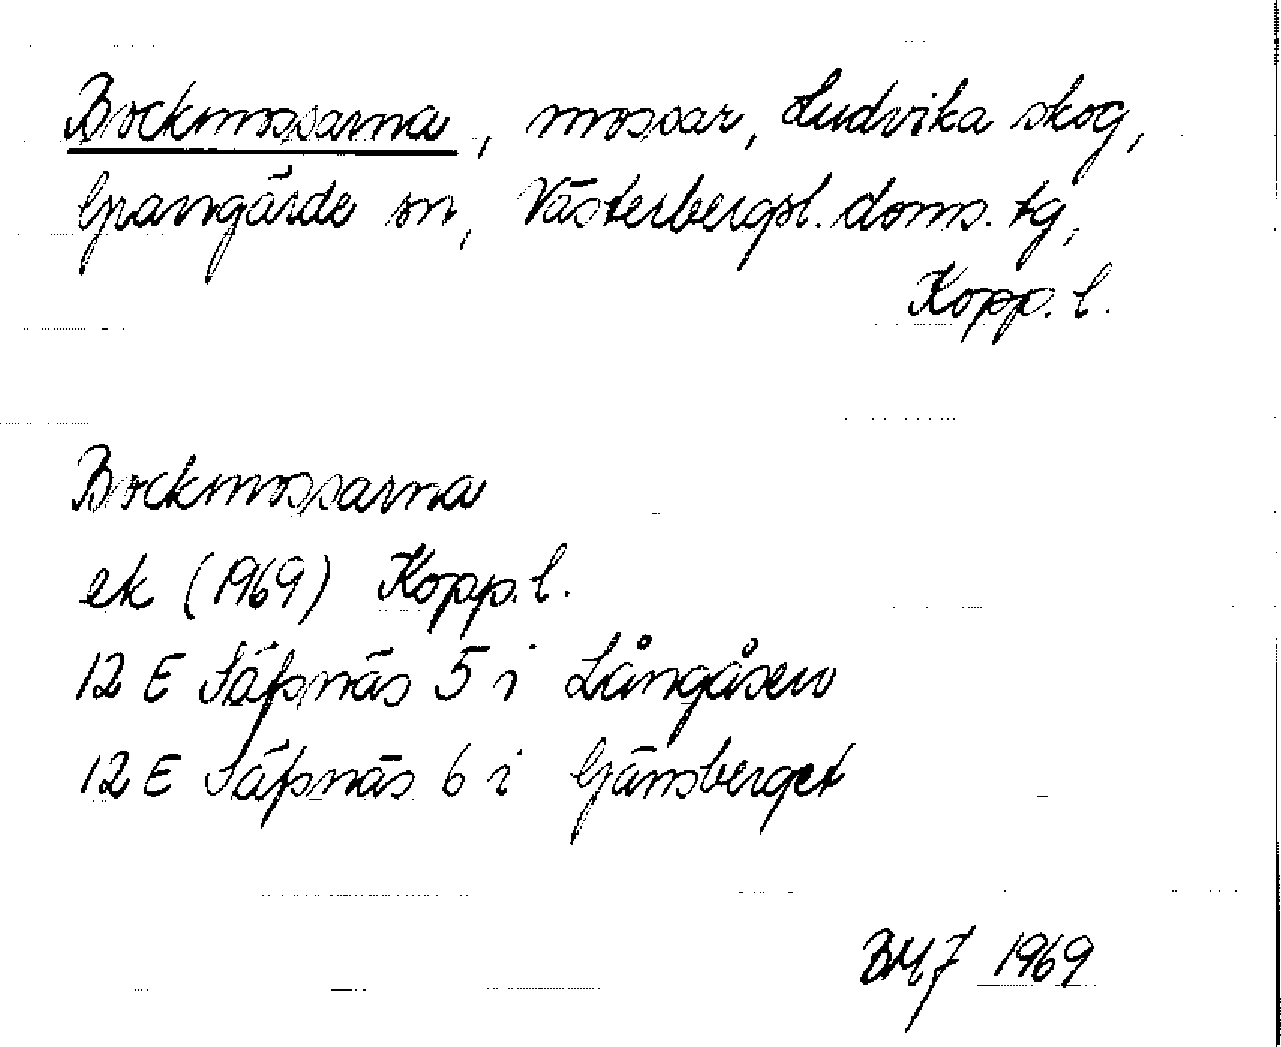 Bockmossarna, mossar, Ludvika skog,
Grangärde sn, Västerbergsl. doms. tg,
Kopp. l.
Bockmossarna
ek (1969) Kopp. l.
12 E Säfsnäs 5 i Långåsen
12 E Säfsnäs 6 i Gänsberget
BMJ 1969